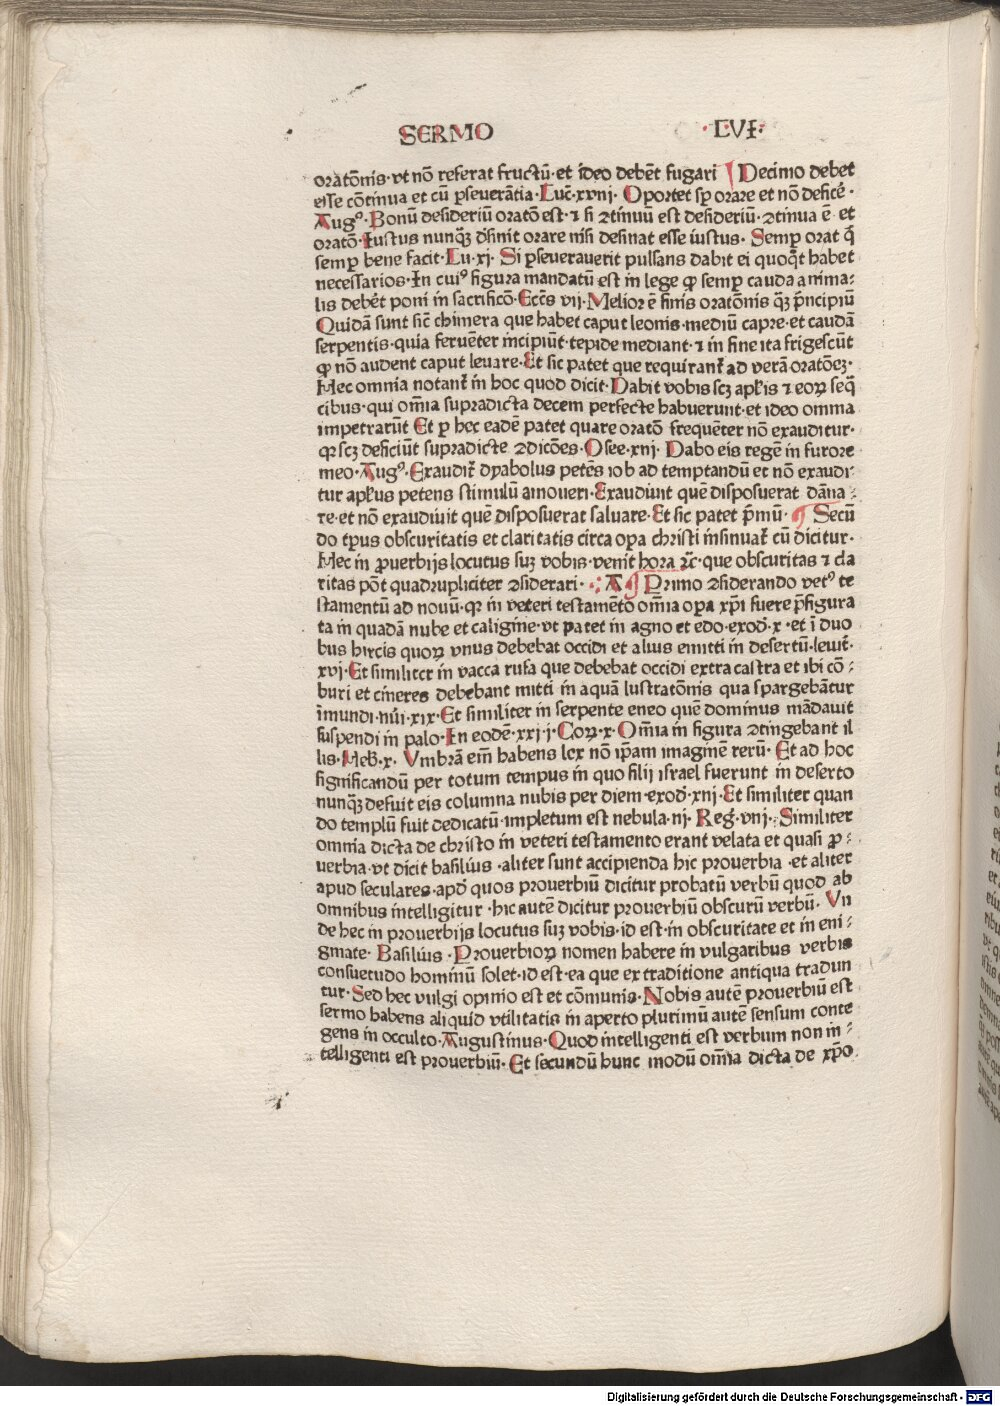 SERMO ·LVI·
oratōnis·vt nō referat fructū·et ideo debēt fugari ¶ Decimo debet
esse cōtinua et cū ꝑseuerātia·Luc̄·xviij· Oportet sꝑ orare et nō deficē·
Augꝰ·Bonū desideriū oratō est·⁊ si ꝯtinuū est desideriū·ꝯtinua ē et
oratō·Iustus nunqꝫ dsinit orare nisi desinat esse iustus· Semꝑ orat q̄
semꝑ bene facit·Lu·xj· Si ꝑseuerauerit pulsans dabit ei quoqt̄ habet
necessarios·In cuiꝰ figura mandatū est in lege ꝙ semꝑ cauda anima-
lis debēt poni in sacrificō·Eccs̄ vij·Melior ē finis oratōnis qꝫ p̄ncipiū
Quidā sunt sic̄ chimera que habet caput leonis·mediū capre·et caudā
serpentis·quia feruēter incipiūt·tepide mediant·⁊ in fine ita frigescūt
ꝙ nō audent caput leuare·Et sic patet que requirant̄ ad verā oratōeꝫ·
Hec omnia notant̄ in hoc quod dicit·Dabit vobis scꝫ apl̄is ⁊ eoꝝ seq̄
cibus·qui om̄ia supradicta decem perfecte habuerunt·et ideo omnia
impetrarūt Et ꝑ hec eadē patet quare oratō frequēter nō exauditur·
qꝛ scꝫ deficiūt supradicte ꝯdicōes·Osee·xiij·Dabo eis regē in furore
meo·Augꝰ·Exaudit̄ dyabolus petēs iob ad temptandū et nō exaudi
tur apl̄us petens stimulū amoueri·Exaudiuit quē disposuerat dāna-
re·et nō exaudiuit quē disposuerat saluare·Et sic patet p̄mū· ¶ Secū
do tp̄us obscuritatis et claritatis circa oꝑa christi insinuat̄ cū dicitur·
Hec in ꝓuerbijs locutus suꝫ vobis·venit hora ⁊c̄·que obscuritas ⁊ cla
ritas pōt quadrupliciter ꝯsiderari· A ¶ Primo ꝯsiderando vetꝰ te
stamentū ad nouū·qꝛ in veteri testamēto om̄ia oꝑa xp̄i fuere p̄figura
ta in quadā nube et caligine·vt patet in agno et edo·exod̄·x·et ī duo
bus hircis quoꝝ vnus debebat occidi et alius emitti in desertū·leuit̄·
xvj·Et similiter in vacca rufa que debebat occidi extra castra et ibi cō-
buri et cineres debebant mitti in aquā lustratōnis qua spargebātur
īmundi·nūi·xix·Et similiter in serpente eneo quē dominus mādauit
suspendi in palo·In eodē·xxij·j·Coꝝ·x·Om̄ia in figura ꝯtingebant il
lis·Heb̄·x· Vmbrā em̄ habens lex nō ip̄am imaginē rerū· Et ad hoc
significandū per totum tempus in quo filij israel fuerunt in deserto
nunqꝫ defuit eis columna nubis per diem·exod̄·xiij·Et similiter quan
do templū fuit dedicatū·impletum est nebula·iij·Reḡ·viij· Similiter
omnia dicta de christo in veteri testamento erant velata et quasi ꝓ-
uerbia·vt dicit basilius·aliter sunt accipienda hic prouerbia·et aliter
apud seculares·apd̄ quos prouerbiū dicitur probatū verbū quod ab
omnibus intelligitur·hic autē dicitur prouerbiū obscurū verbū· Vn
de hec in prouerbijs locutus suꝫ vobis·id est·in obscuritate et in eni-
gmate·Basilius·Prouerbioꝝ nomen habere in vulgaribus verbis
consuetudo hominū solet·id est·ea que ex traditione antiqua tradun
tur·Sed hec vulgi opinio est et cōmunis·Nobis autē prouerbiū est
sermo habens aliquid vtilitatis in aperto plurimū autē sensum conte
gens in occulto·Augustinus·Quod intelligenti est verbum non in-
telligenti est prouerbiū·Et secundū hunc modū om̄ia dicta de xp̄o
Digitalisierung gefördert durch die Deutsche Forschungsgemeinschaft - DFG